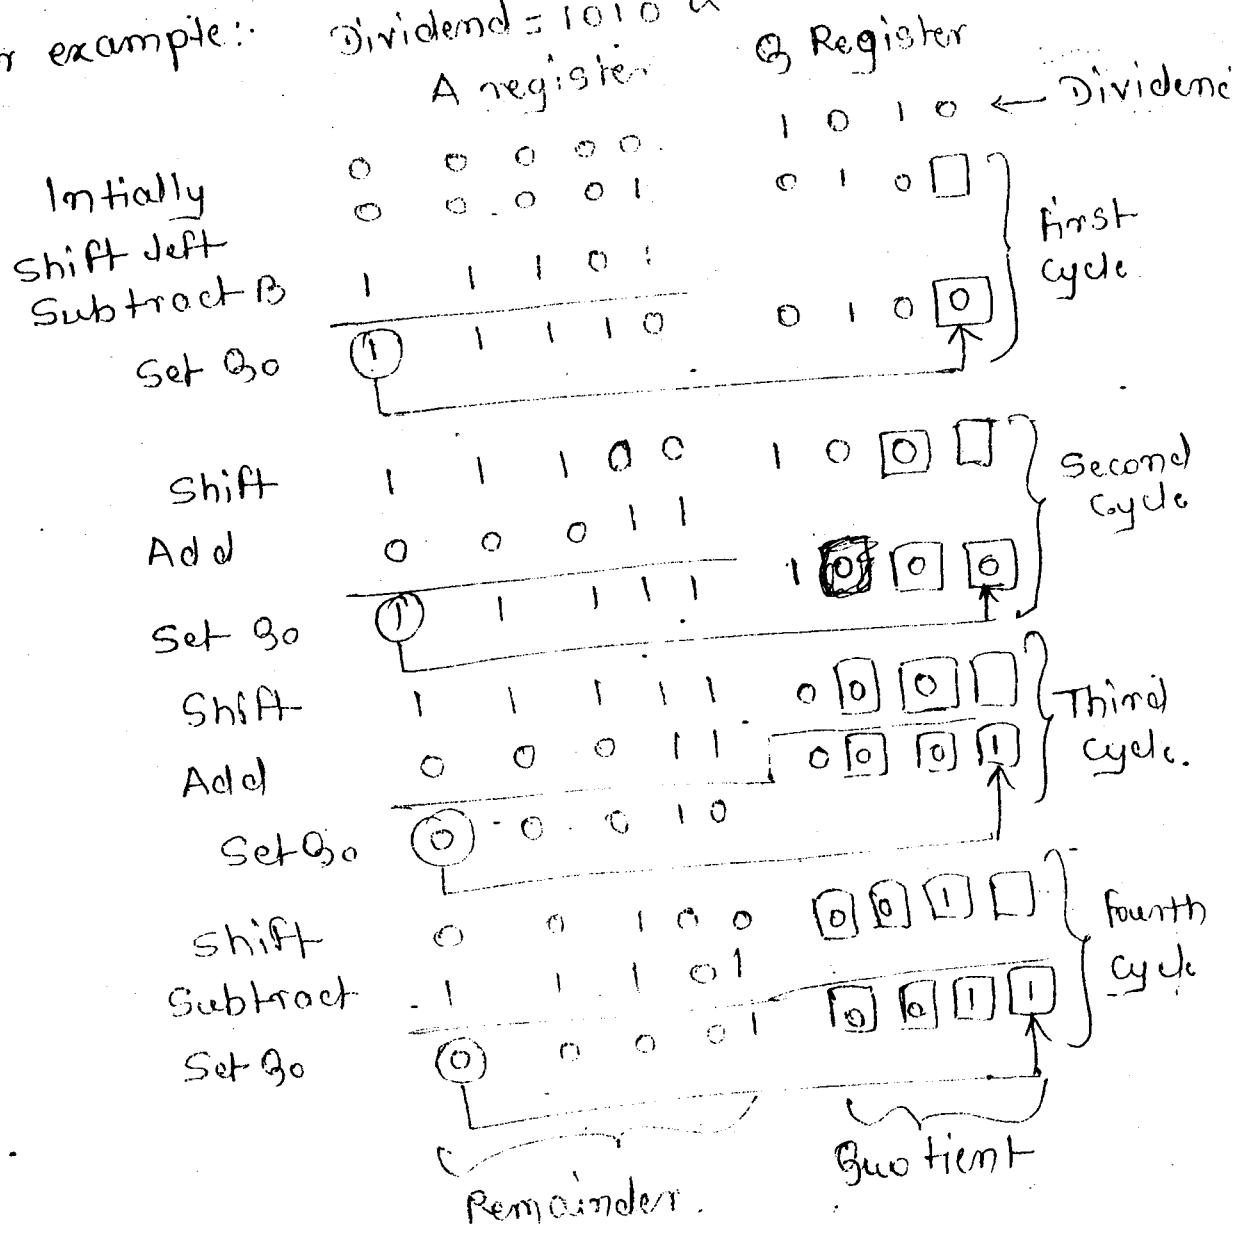 r example:- Dividend = 1010
A register Q Register
Intially 0 0 0 0 0 1 0 1 0 ← Dividend
Shift left 0 0 0 0 1 0 1 0
Subtract B 1 1 1 0 1
Set Q0 1 1 1 1 0 0 1 0 0
First cycle
Shift 1 1 1 0 0 1 0 0
Add 0 0 0 1 1
Set Q0 1 1 1 1 1 1 0 0 0
Second cycle
Shift 1 1 1 1 1 0 0 0
Add 0 0 0 1 1 0 0 0 1
Set Q0 0 0 0 1 0
Third cycle.
Shift 0 0 1 0 0 0 0 1
Subtract 1 1 1 0 1
Set Q0 0 0 0 0 1 0 0 1 1
Fourth cycle
Remainder. Quotient